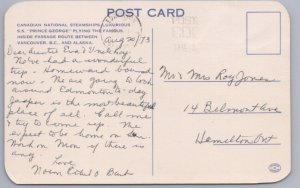 POST CARD
CANADIAN NATIONAL STEAMSHIPS' LUXURIOUS
S.S. "PRINCE GEORGE" PLYING THE FAMOUS
INSIDE PASSAGE ROUTE BETWEEN
VANCOUVER, B.C. AND ALASKA.
Aug 20/73
Dear Auntie Eva &
We've had a wonderful
trip. Homeward bound
now. We are going to be
around Edmonton to-day
Jasper is the most beautiful
place of all. Call me
& try to come up. We
expect to be home on
Mon if there is
any.
Love
Norm
Mr & Mrs Roy Jones
14 Belmont Ave
Hamilton Ont